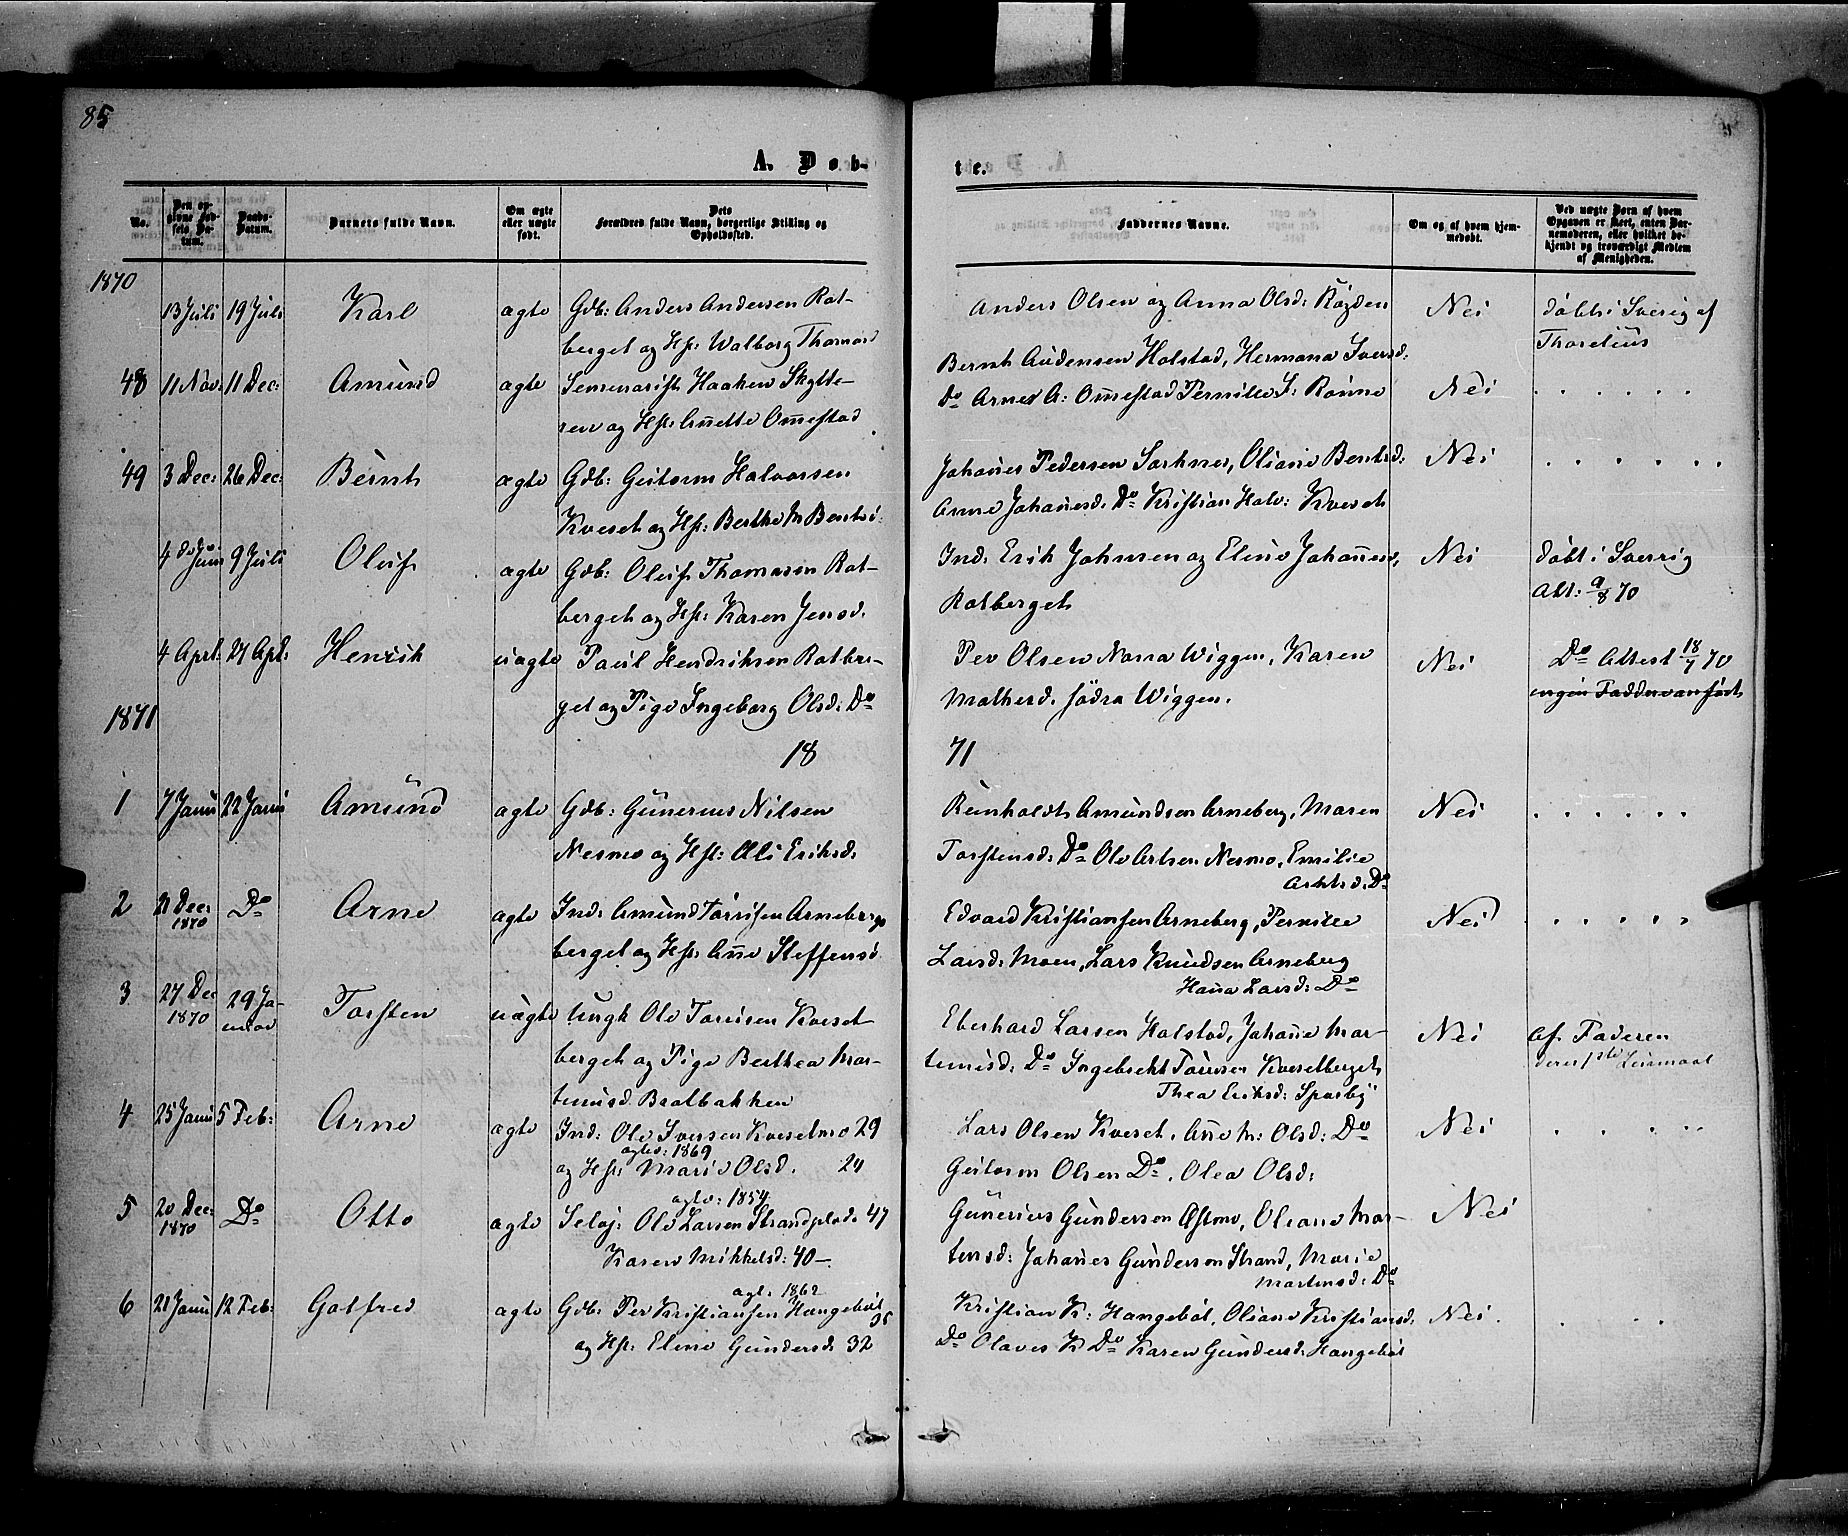 85
A. Døb-
te.
No.
Den op-
givne Fød-
sels Da-
tum.
Daabs-
Datum.
Barnets fulde Navn.
Om ægte
eller uægte
født.
Dets
Forældres fulde Navn, borgerlige Stilling og
Opholdssted.
Faddernes Navne.
Om og af hvem hjem-
medøbt.
Ved uægte Børn af hvem
Opgaven er skeet, enten Bar-
nemoderen, eller hvilket be-
kjendt og troværdigt Medlem
af Menigheden.
1870
13 Juli 19 Juli Karl ægte Gdb: Anders Andersen Rot-
berget og Hst: Walborg Thomasd
Anders Olsen og Anna Olsd: Røgden
Nei
døbt i Sverig af
Thorelius
48 11 Nov: 11 Dec: Amund ægte Semenarist Haaken Skytte-
ren og Hst: Anette Omestad
Bernt Audensen Holstad, Hermana Iversd:
Do Arnes A: Omestad Pernille
Nei
49 3 Dec: 26 Dec: Bernt ægte Gdb: Gutorm Halvorsen
Kveset og Hst: Berthe M Berntsd:
Johanes Pedersen Oliane Berntsd:
Anne Johanesd: Do Kristian Halv: Kveset
Nei
4 Juni 9 Juli Oluf ægte Gdb: Oluf Thomasen Rot-
berget og Hst: Karen Jensd.
Ind: Erik Johnsen og Eline Johanesd,
Rotberget
Nei
døbt i Sverrig
Att: 9/8 70
4 Aprl: 27 Apl: Henrik uægte Paul Hendriksen Rotber-
get og Pige Ingeborg Olsd: Do
Per Olsen Norra Wiggen, Karen
Mathesd. södra Wiggen.
Nei
Do Attest 18/7 70
ingen Faddere anført
1871
18 71
1 7 Janu 22 Janu Amund ægte Gdb: Gunerius Nilsen
Nesmo og Hst: Oli Eriksd.
Reinholdt Amundsen Arneberg, Maren
Torstensd: Do Ole Nesmo, Emilie
Do
Nei
2 21 Dec:
1870 Do Arne ægte Ind: Amund Arneberg
berget og Hst: Ane Steffensd
Edvard Kristiansen Arneberg, Pernille
Larsd: Moen, Lars Knudsen Arneberg
Hana Larsd: Do
Nei
3 27 Dec
1870 29 Ja-
nuar Torsten uægte Ungk Ole Torrisen Kveset
berget og Pige Berthea Mar-
tinusd. Bratbakken
Eberhard Larsen Holstad, Johane Mar-
tinusd: Do Ingebreht Kvesetberget
Thea Eriksd: Sparby
Nei
Af Faderen
deres 1ste Leiermaal
4 25 Janu 5 Feb: Arne ægte Ind: Ole Iversen Kvesetmo 29
ægtev: 1869
og Hst: Marie Olsd. 24
Lars Olsen Kveset, Ane M: Olsd: Do
Gutorm Olsen Do, Olea Olsd:
Nei
5 20 Dec:
1870 Do Otto ægte
ægtev: 1854
Selvej: Ole Larsen Strandplads 47
Karen Mikkelsd: 40 —
Gunerius Gundersen Oliane Mar-
tinsd: Johanes Gundersen Strand, Marie
Martinsd: Do
Nei
6 21 Janu 12 Feb: Gotfred ægte
ægt: 1862
Gdb: Per Kristiansen Hangebøl
35
og Hst: Eline Gundersd: 32
Kristian K: Hangebøl, Oliane Kristiansd:
Do Olaves K Do Karen Gundersd: Hangebøl
Nei.